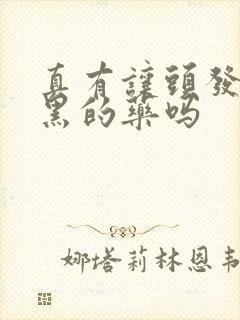 真有讓頭發
黑的藥嗎
娜塔莉林恩韦